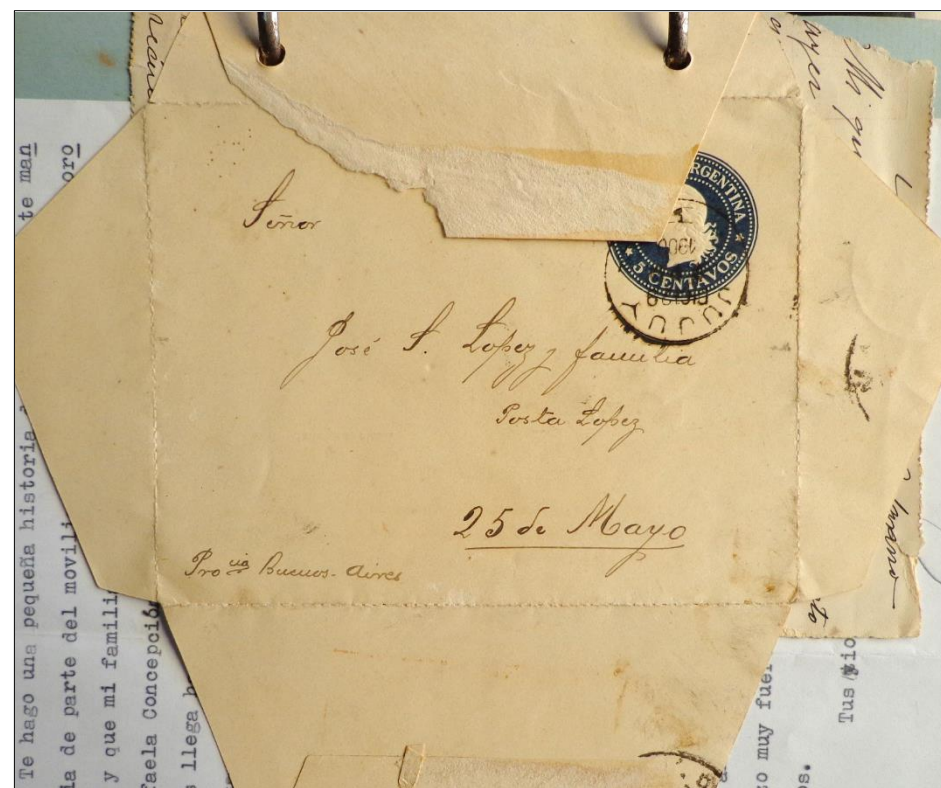 Señor
José S. Lopez y familia
Posta Lopez
25 de Mayo
Pro cia Buenos-Aires
ARGENTINA
5 CENTAVOS
JUJUY
Te hago una pequeña historia
ia de parte del movili
y que mi famili
faela Concepció
s llega h
te man
oro
Mi qu
ayer
muy fue
Tus
os.